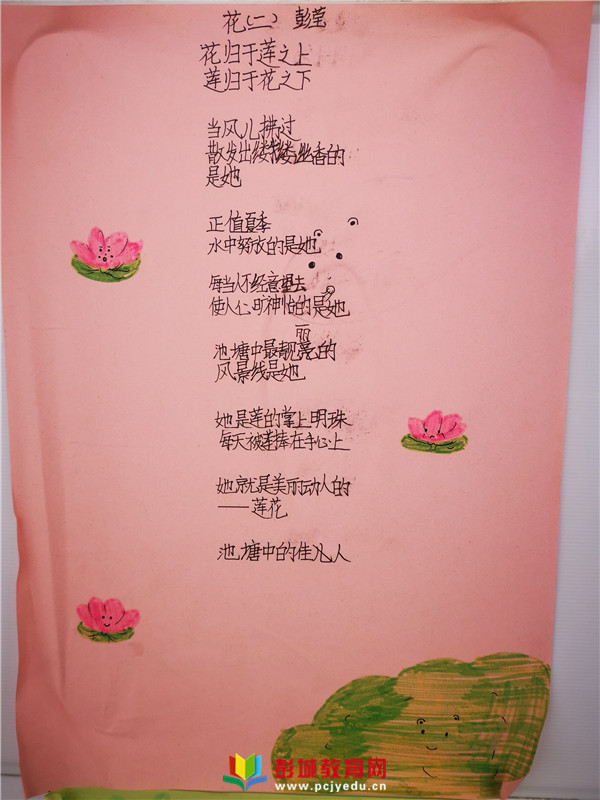 花(二) 彭莹
花归于莲之上
莲归于花之下
当风儿拂过
散发出缕缕幽香的
是她
正值夏季
水中努放的是她
每当人不经意望去
使人心旷神怡的是她
丽
池塘中最靓的
风景线是她
她是莲的掌上明珠
每天被莲捧在手心上
她就是美丽动人的
——莲花
池塘中的佳人
彭城教育网
www.pcjyedu.cn